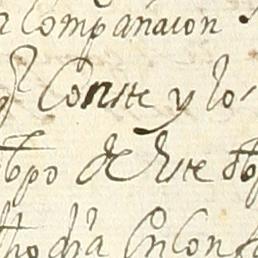 Compañacion
q Conste y lo
tpo de este
dho dia en con